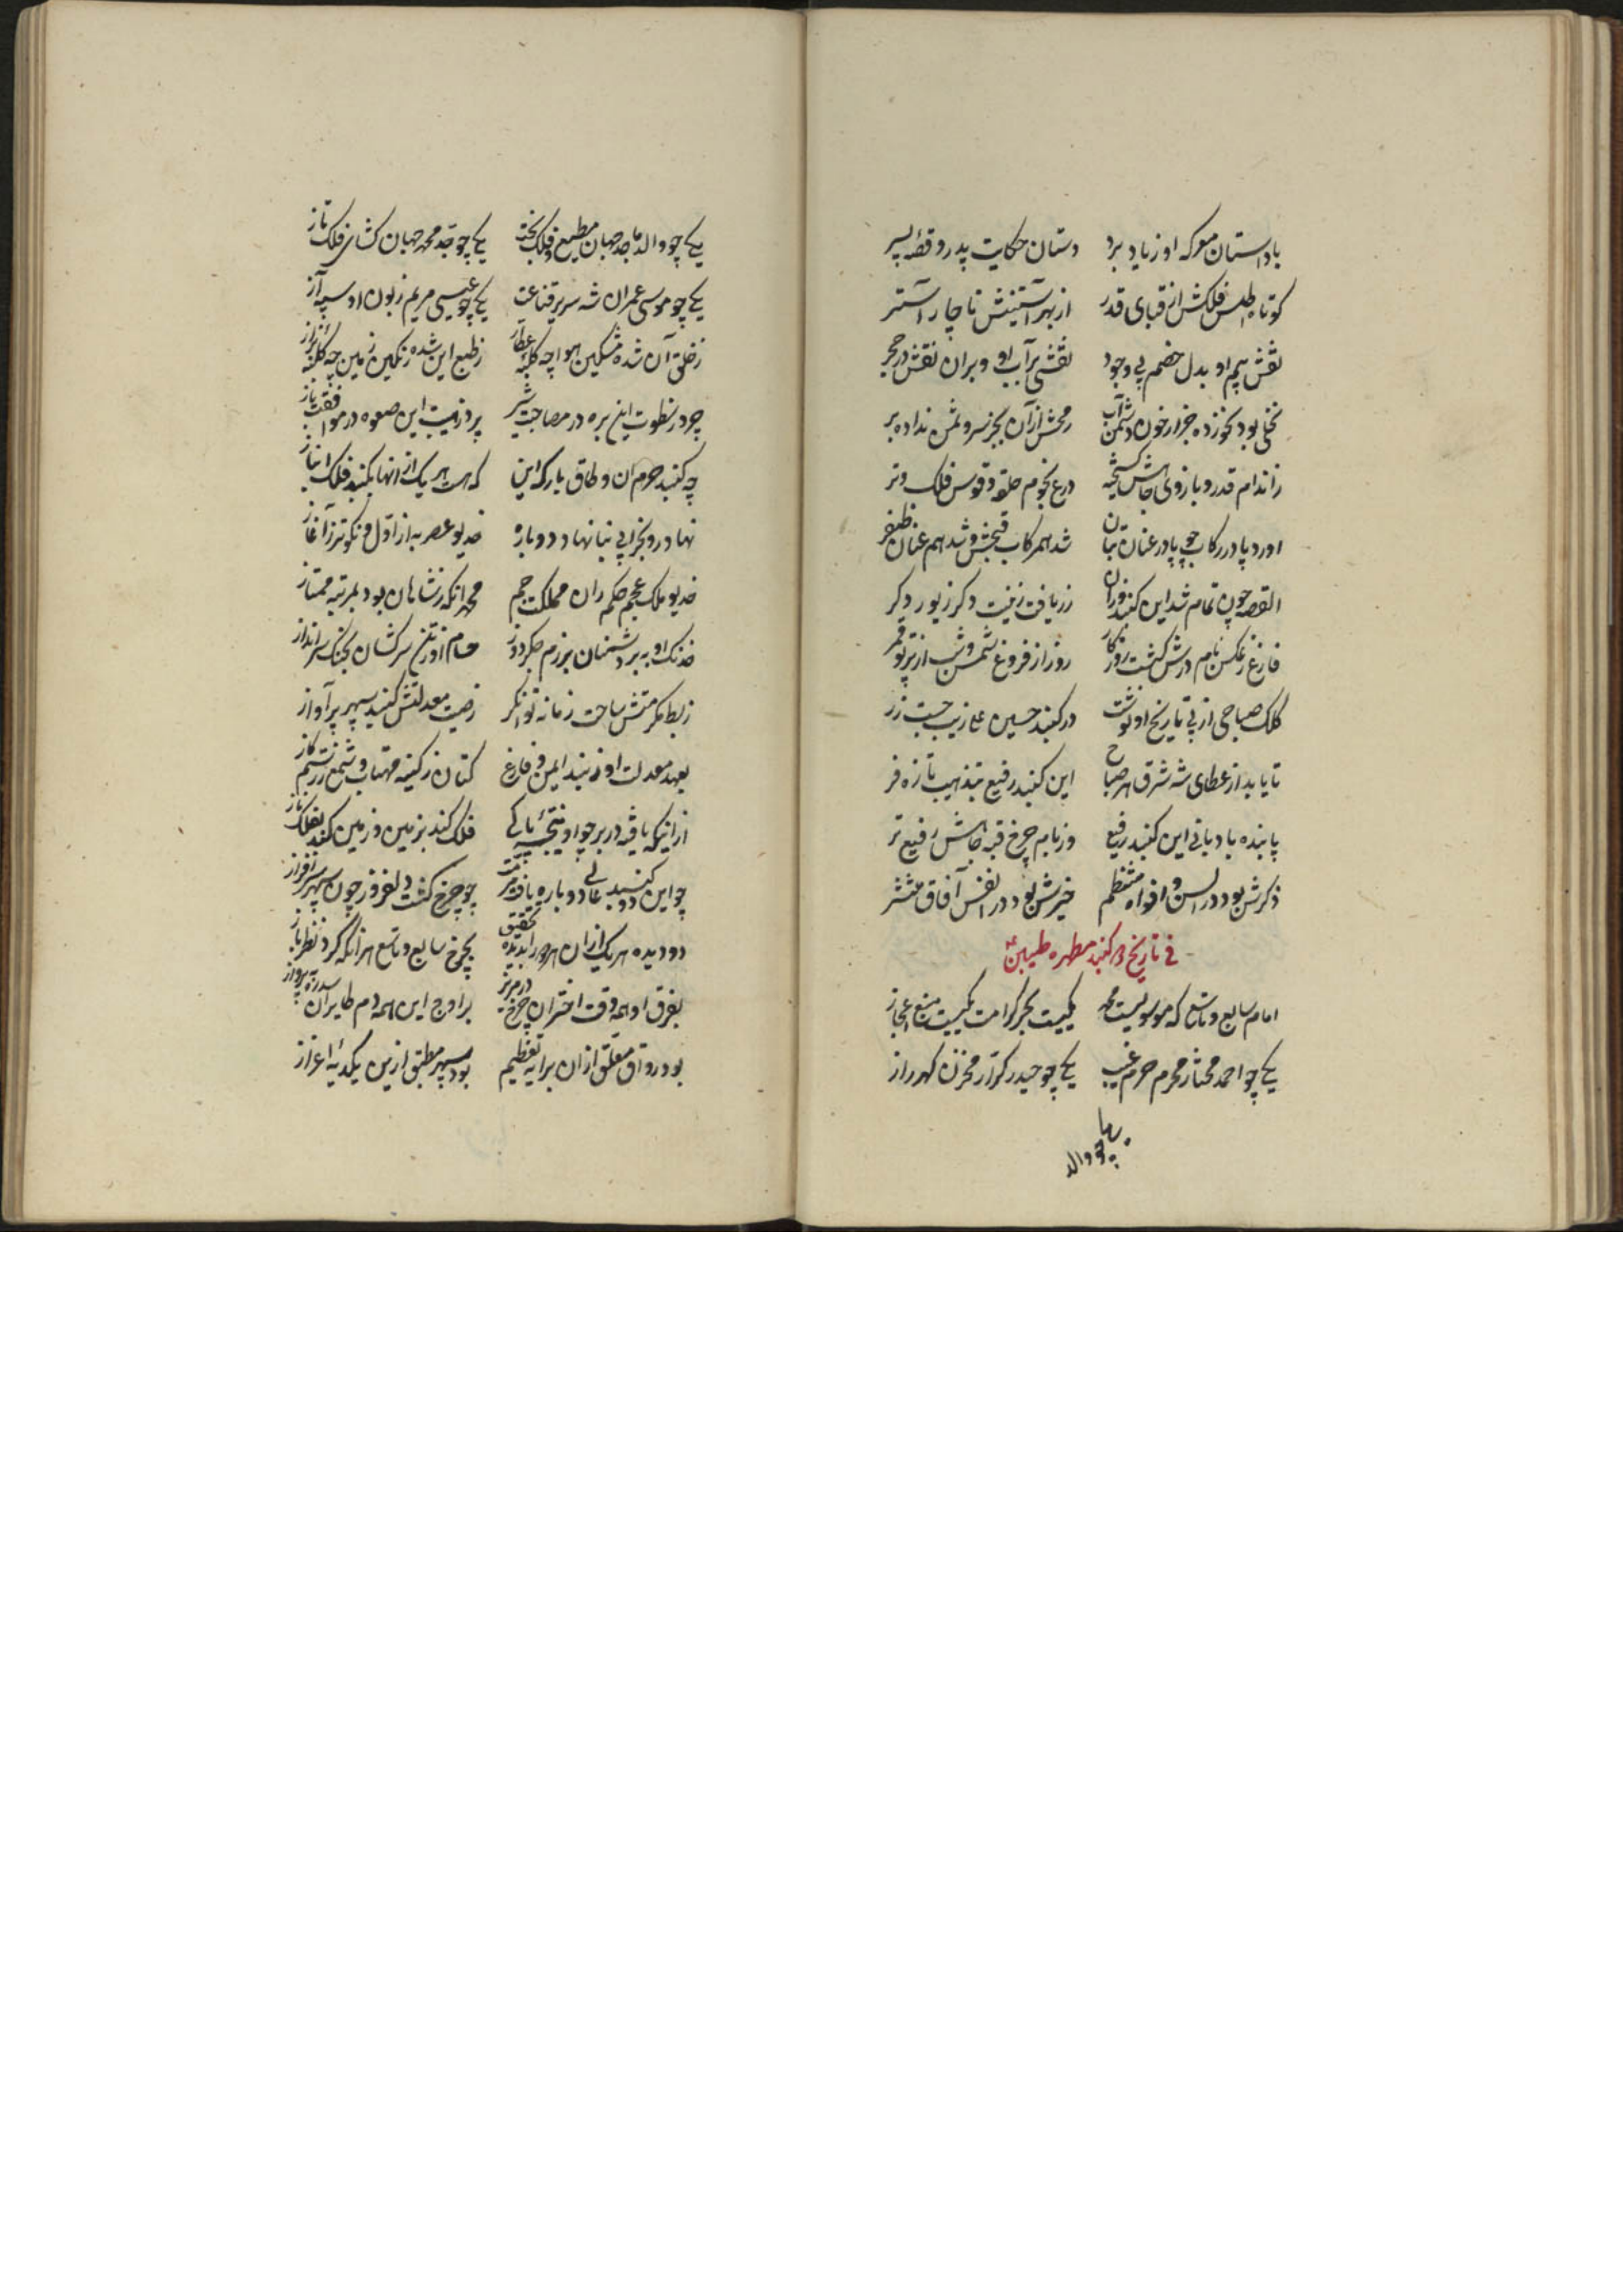 با داستان معرکه او زیاد برد دستان حکایت پدر و قصّه پسر
کوتاه اطلس فلکش از قبای قدر از بهر آستینش ناچار آستر
نقش بیم او بدل خصم بی وجود نقشی بر آب او وبران نقش در حجر
نخلی بود نخورده بجز از خون دشمن آب رمحش از آن بجز سر دشمن نداده بر
ز اندام قدر و بازوی جاهش درع نجوم حلقه و قوس فلک وتر
اورد پا در رکاب چو پا در عنان شد همرکاب فتحش و شد هم عنان ظفر
القصه چون تمام شد این کنبد وزان زر یافت زینت دکر زیور دکر
فارغ ز عکس بام و درش کشت روزکار روز از فروغ شمس و شب از پرتو قمر
کلک صباحی از پی تاریخ او نوشت در کنبد حسین علی زیب جست زر
تا یابد از عطای شه شرق هر صباح این کنبد رفیع بتذهیب تازه فر
پاینده باد بانی این کنبد رفیع وز بام چرخ قبه جاهش رفیع تر
ذکرش بود در السن و افواه منتظم خیرش بود در انفس آفاق منتشر
فی تاریخ کنبد مطهره طیبین
امام سابع و تاسع که موسویست و محمد یکیست بحر کرامت یکیست منبع اعجاز
یکی چو احمد مختار محرم حرم غیب یکی چو حیدر کرّار مخزن کهر راز
یکی چو والد
یکی چو والد ماجد جهان مطیع و فلک تخت یکی چو جد محمد جهان کشای فلک تاز
یکی چو موسی عمران شه سریر قناعت یکی چو عیسی مریم زبون او سپه آز
ز خلق آن شده مشکین هوا چه کلبه عطار ز طبع این شده رنکین زمین چه کلبه بزاز
چرد ز سطوت این بره در مصاحبت شیر پرد ز هیبت این صعوه در موافقت باز
چه کنبد حرم ان و طاق بارکه این که هست هر یک از انها بکنبد فلک انباز
نهاد رو بخرابی بنا نهاد دوباره خدیو عصر به از اوّل و نکوتر ز آغاز
خدیو ملک عجم حکمران مملکت جم محمد انکه ز شاهان بود بمرتبه ممتاز
خدنک او به بر دشمنان برزم جکردوز حسام او ز تن سرکشان بجنک سرانداز
ز بسط مکرمتش ساحت زمانه توانکر ز صیت معدلتش کنبد سپهر پر آواز
بعهد معدلت او زیند ایمن و فارغ کتان ز کینه مهتاب و شمع از ستم کاز
از اینکه یافته در بر چو او نتیجه پاکی فلک کند بزمین و زمین کند بفلک ناز
چو این دو کنبد عالی دوباره یافت مرمت چو چرخ کشت دلفروز چون سپهر سرافراز
دو دیده هر یک از ان هر دو را بدیده تحقیق بچرخ سابع و تاسع هر انکه کرد نظر باز
بفرق او همه وقت اختران چرخ بر اوج این همه دم طایران سدره به پرواز
بود رواق معلّق از ان برایه تعظیم بود سپهر مطبق ازین یکدیه اعزاز